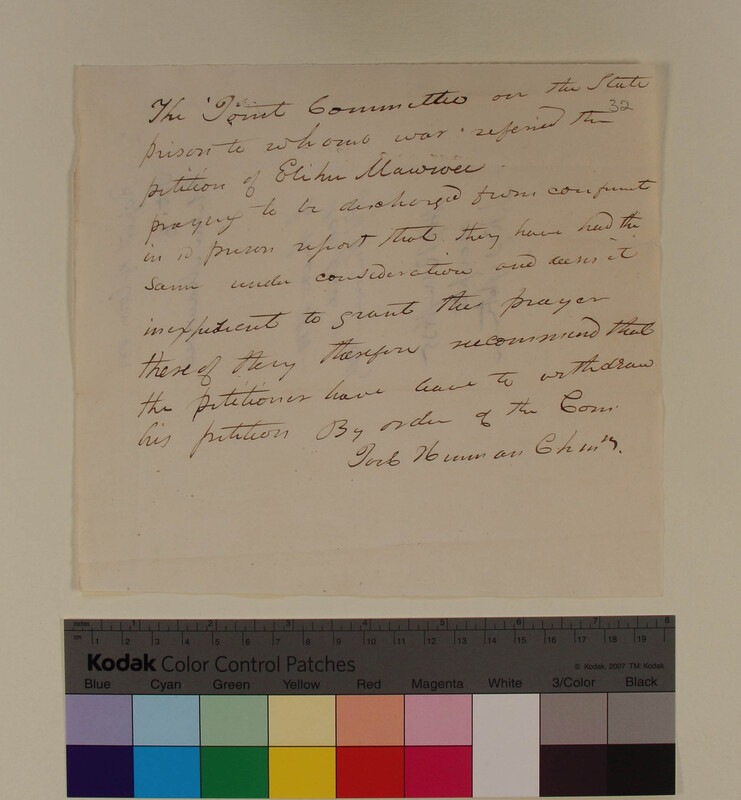 The Joint Committee on the State
32
prison to whome was referred the
petition of Elihu Mawwee
praying to be discharged from confinment
in sd prison report that they have had the
same under consideration and deem it
inexpedient to grant the prayer
there of they therefore recommend that
the petitioner have leave to withdraw
his petition By order of the Com
Hinman Chmn.
inches 1 2 3 4 5 6 7 8
cm 1 2 3 4 5 6 7 8 9 10 11 12 13 14 15 16 17 18 19
Kodak Color Control Patches
© Kodak, 2007 TM: Kodak
Blue Cyan Green Yellow Red Magenta White 3/Color Black